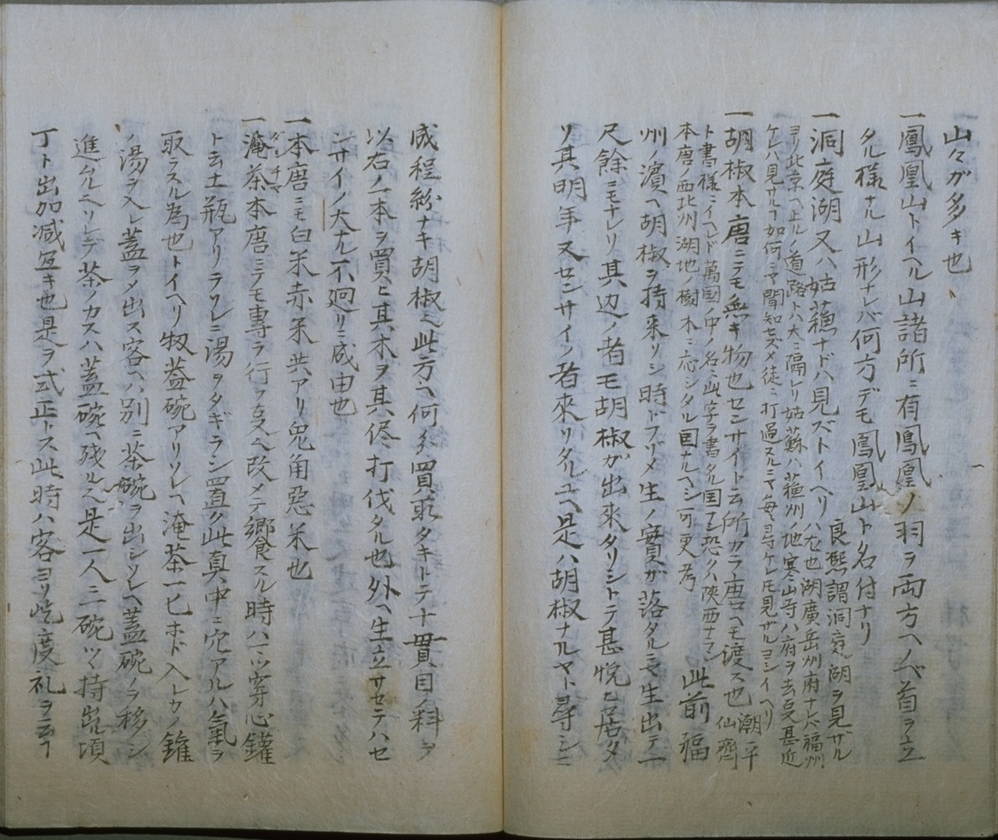 山々ガ多キ也
一鳳凰山トイヘル山諸所ニ有鳳凰ノ羽ヲ両方ヘノベ首ヲ立
タル様ナル山形ナレバ何方デモ鳳凰山ト名付ナリ
一洞庭湖又ハ姑蘓ナドハ見ズトイヘリ
良熈謂洞庭ノ湖ヲ見サル
ハ尤也湖廣岳州府ナレバ福州
ヨリ北京ヘ上ルノ道路ハ大ニ隔レリ姑蘇ハ蘓州ノ地寒山寺ハ府ヲ去
甚近
ケレハ見サル
如何ニヤ聞知セズメ徒ニ打過スルニヤ毎々尋ケレドモ見サルヨシイヘリ
一胡椒本唐ニテモ無キ物也センサイト云所カラ唐ヘモ渡ス也
ト書様ニイヘド萬国ノ中ノ名ニ此字ヲ書タル国
恐クハ陝西ナラン
本唐ノ西北州湖地ノ樹木ニ応シタル国ナルヘシ可更考
此前福
州ノ濱ヘ胡椒ヲ持来リシ時ドフソメ生ノ實ガ落タルニヤ生出テ一
尺餘ニモナレリ其辺ノ者モ胡椒ガ出来タリシトテ甚悦ヒ居タ
リ其明年又センサイノ者来リタルユヘ是ハ胡椒ナルヤト尋シニ
成程紛ナキ胡椒也此方ヘ何
買求タキトテ十貫目ノ料ヲ
以右ノ一本ヲ買ヒ其木ヲ其侭打伐タル也外ヘ生立サセテハセ
ンサイノ大ナル不廻リニ成由也
一本唐ニモ白米赤米共アリ鬼角惡米也
一淹茶本唐ニテモ専ラ行
ヘ改メテ郷食スル時ハ
穿心鑵
ト云土瓶アリソレニ湯ヲタギラシ置ク此真中ニ穴アルハ氣ヲ
取ラスル為也トイヘリ扨蓋碗アリソレヘ淹茶一匕ホド入レカノ鑵
ノ湯ヲ入レ蓋ヲメ出ス客ヘハ別ニ茶碗ヲ出シソレヘ蓋碗ノヲ移シ
進ムルヘソレデ茶ノカスハ蓋碗ヘ残ル也是一人ニ二碗ツヽ持出頃
丁ト出加减宜キ也是ヲ式正トス此時ハ客ヨリ屹度礼ヲ云